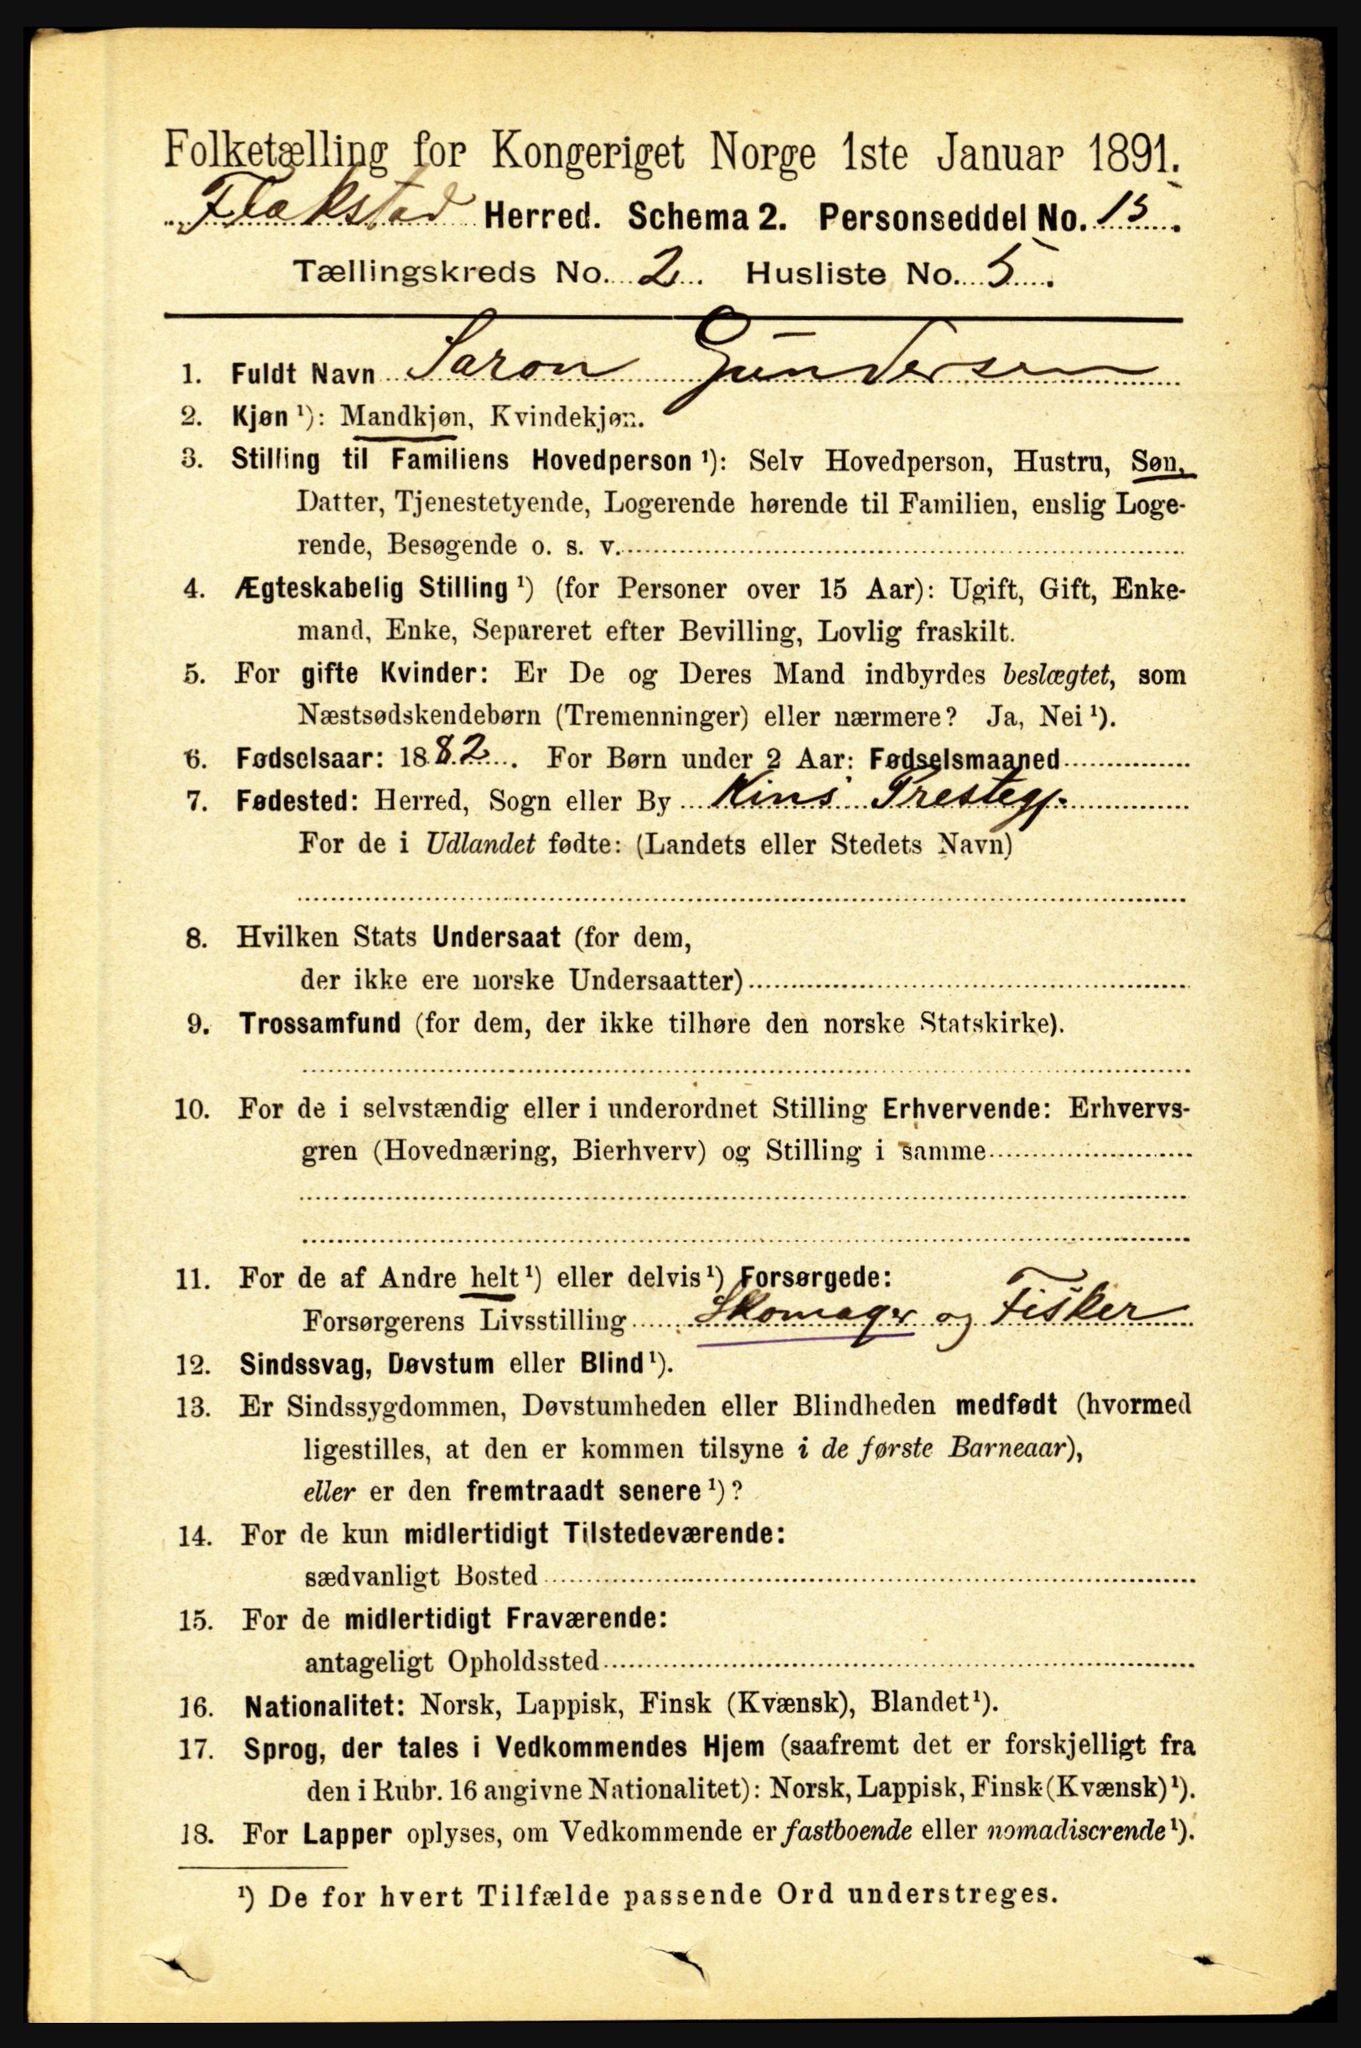 Folketælling for Kongeriget Norge 1ste Januar 1891.
Flakstad Herred. Schema 2. Personseddel No. 15.
Tællingskreds No. 2. Husliste No. 5.
1. Fuldt Navn Saron Gundersen
2. Kjøn ¹): Mandkjøn, Kvindekjøn.
3. Stilling til Familiens Hovedperson ¹): Selv Hovedperson, Hustru, Søn,
Datter, Tjenestetyende, Logerende hørende til Familien, enslig Loge-
rende, Besøgende o. s. v.
4. Ægteskabelig Stilling ¹) (for Personer over 15 Aar): Ugift, Gift, Enke-
mand, Enke, Separeret efter Bevilling, Lovlig fraskilt.
5. For gifte Kvinder: Er De og Deres Mand indbyrdes beslægtet, som
Næstsødskendebørn (Tremenninger) eller nærmere? Ja, Nei ¹).
6. Fødselsaar: 1882. For Børn under 2 Aar: Fødselsmaaned
7. Fødested: Herred, Sogn eller By Kins Prestegj.
For de i Udlandet fødte: (Landets eller Stedets Navn)
8. Hvilken Stats Undersaat (for dem,
der ikke ere norske Undersaatter)
9. Trossamfund (for dem, der ikke tilhøre den norske Statskirke).
10. For de i selvstændig eller i underordnet Stilling Erhvervende: Erhvervs-
gren (Hovednæring, Bierhverv) og Stilling i samme
11. For de af Andre helt ¹) eller delvis ¹) Forsørgede:
Forsørgerens Livsstilling Skomager og Fisker
12. Sindssvag, Døvstum eller Blind ¹).
13. Er Sindssygdommen, Døvstumheden eller Blindheden medfødt (hvormed
ligestilles, at den er kommen tilsyne i de første Barneaar),
eller er den fremtraadt senere ¹)?
14. For de kun midlertidigt Tilstedeværende:
sædvanligt Bosted
15. For de midlertidigt Fraværende:
antageligt Opholdssted
16. Nationalitet: Norsk, Lappisk, Finsk (Kvænsk), Blandet ¹).
17. Sprog, der tales i Vedkommendes Hjem (saafremt det er forskjelligt fra
den i Rubr. 16 angivne Nationalitet): Norsk, Lappisk, Finsk (Kvænsk) ¹).
18. For Lapper oplyses, om Vedkommende er fastboende eller nomadiserende ¹).
¹) De for hvert Tilfælde passende Ord understreges.